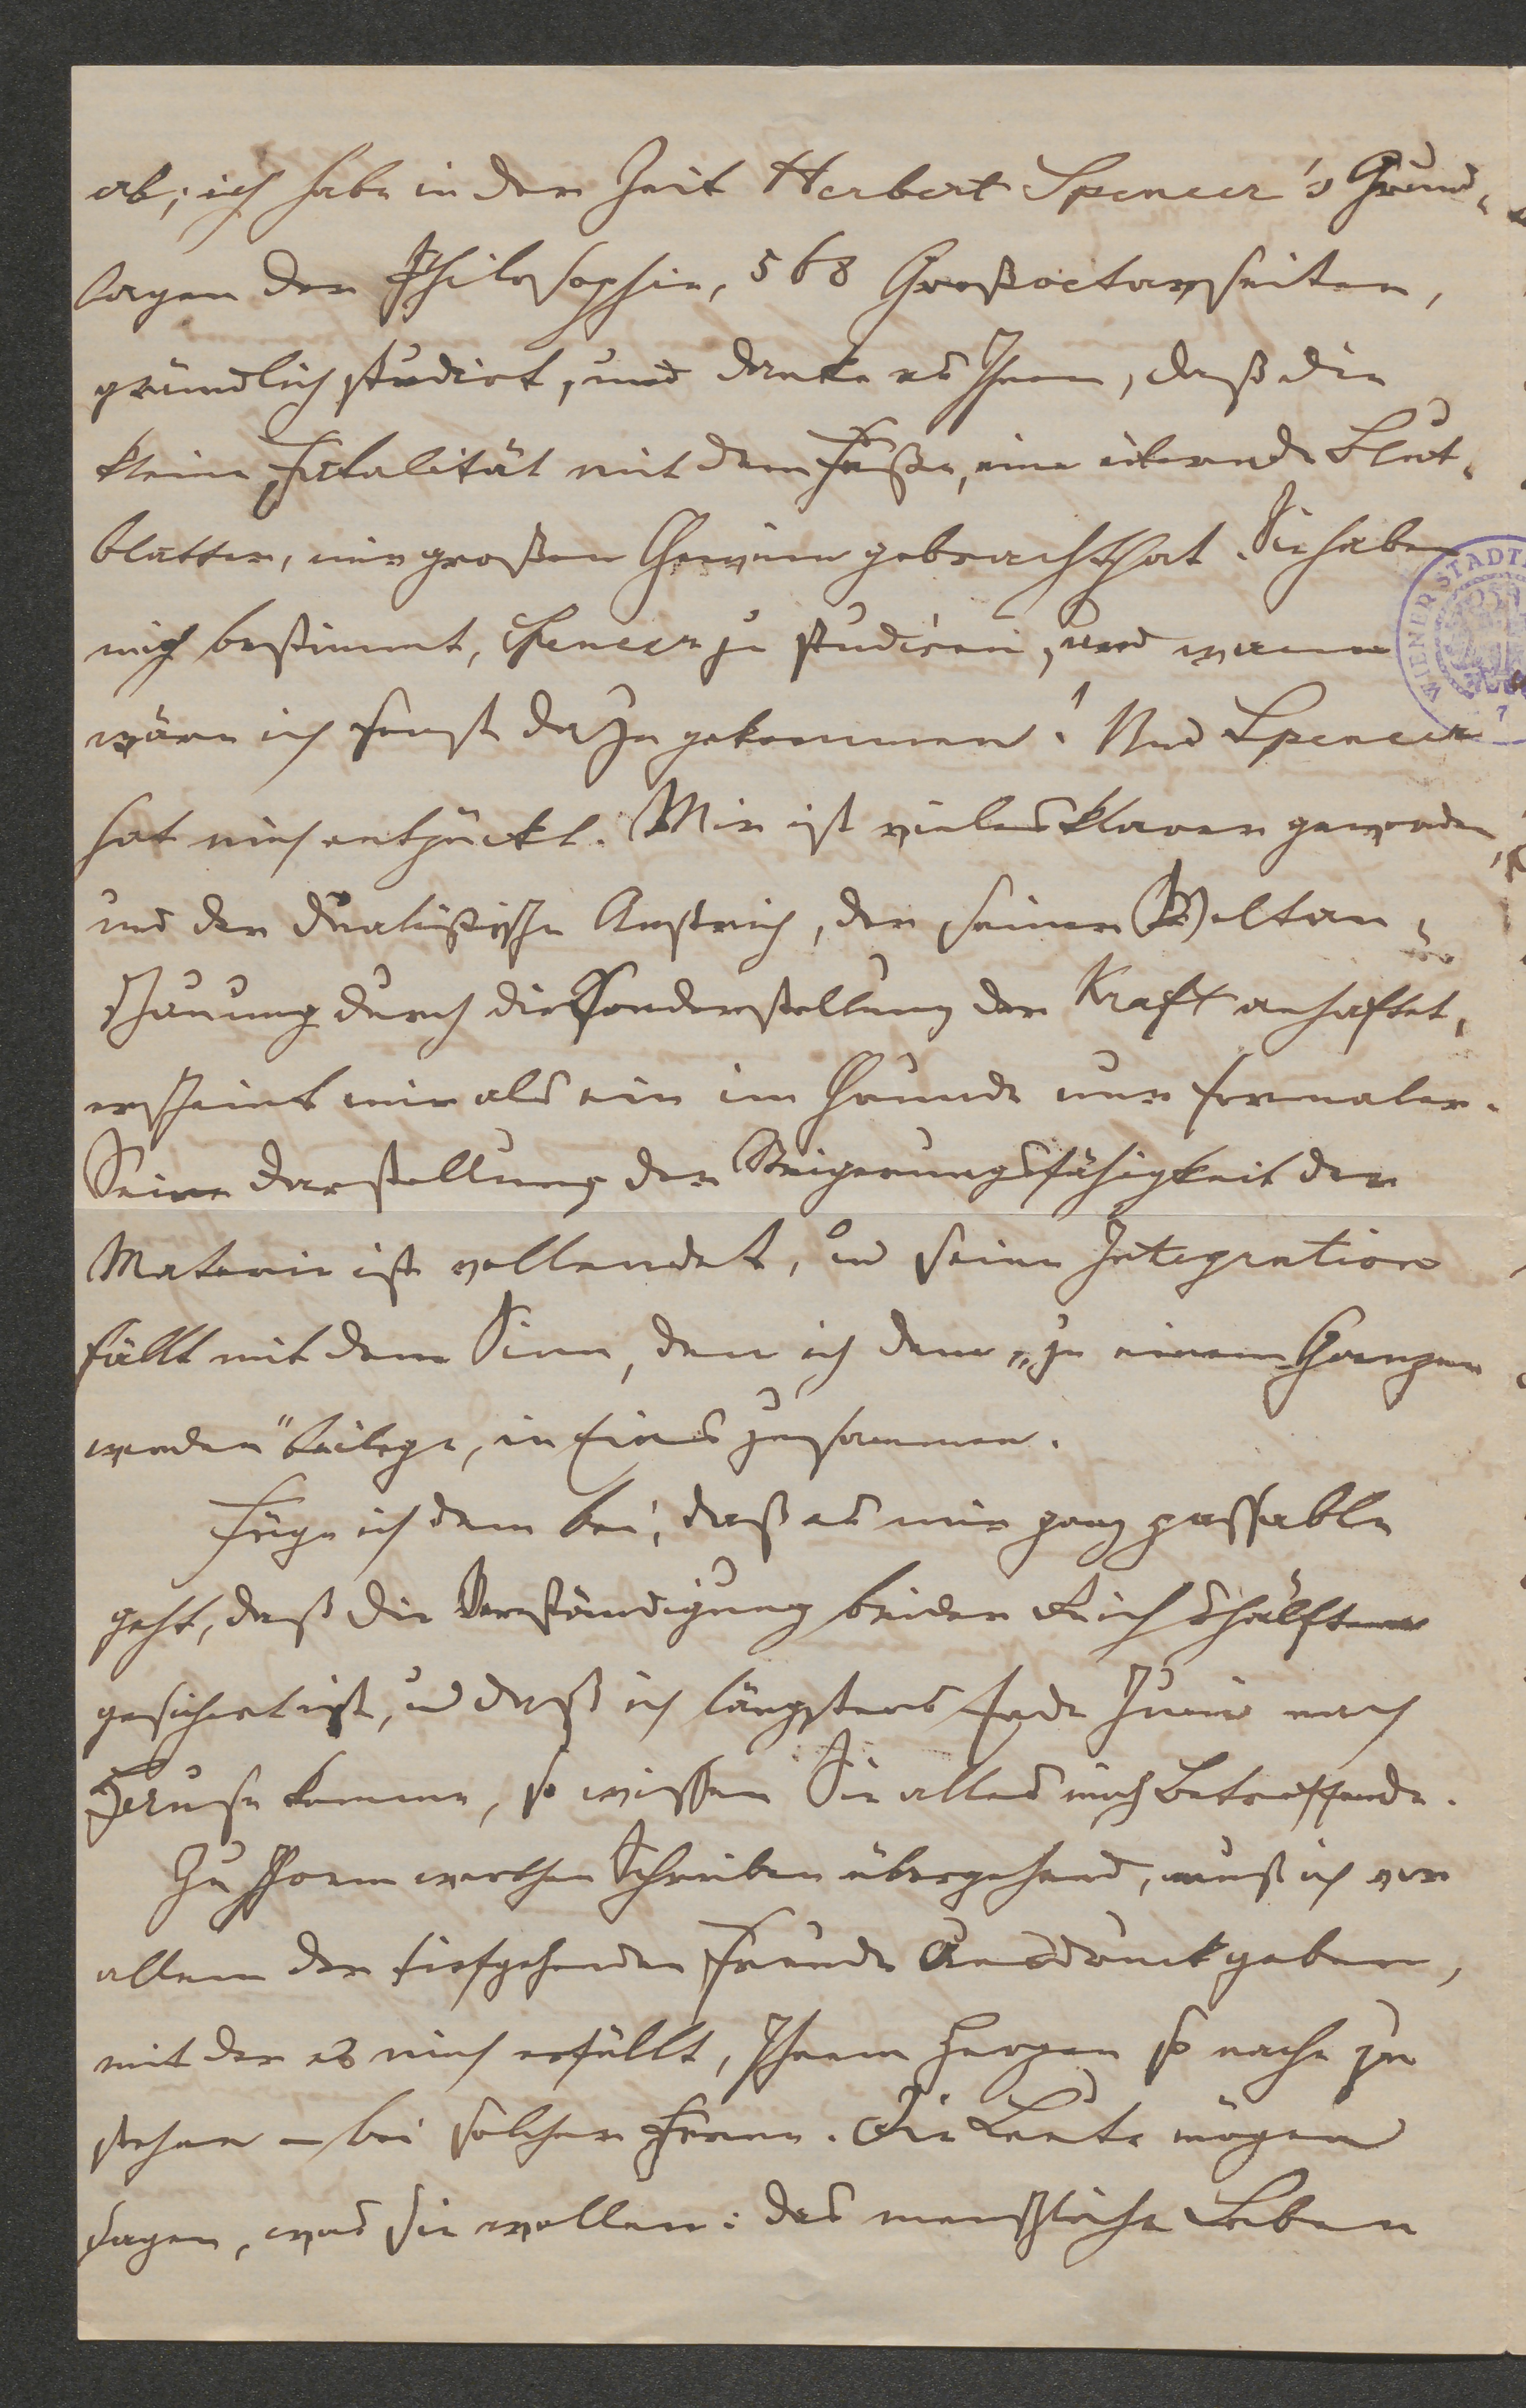 ab; ich habe in der Zeit Herbert Spencer's Grund-
lagen der Philosophie, 568 Großoctavseiten,
gründlich studirt, und danke es Ihnen, daß die
kleine Fatalität mit dem Fuße, eine eiternde Blut-
blatter, mir großen Gewinn gebracht hat. Sie haben
mich bestimmt, Spencer zu studieren, und wann
wäre ich sonst dazu gekommen! Und Spencer
hat mich entzückt. Mir ist vieles klarer geworden,
und der dualistische Anstrich, der seiner Weltan-
schauung durch die Sonderstellung der Kraft anhaftet,
erscheint mir als ein im Grunde nur formaler.
Seine Darstellung der Steigerungsfähigkeit der
Materie ist vollendet, u seine Integration
fällt mit dem Sinn, den ich dem „zu einem Ganzen
werden" beilege, in Eins zusammen.
Füge ich dem bei, daß es mir ganz passable
geht, daß die Verständigung beider Reichshälften
gesichert ist, u daß ich längstens Ende Juni nach
Hause komme, so wissen Sie alles mich Betreffende.
Zu Ihrem werthen Schreiben übergehend, muß ich vor
allem der tiefgehenden Freude Ausdruck geben,
mit der es mich erfüllt, Ihrem Herzen so nahe zu
stehen – bei solcher Ferne. Die Leute mögen
sagen, was sie wollen: das menschliche Leben
WIENER STADT